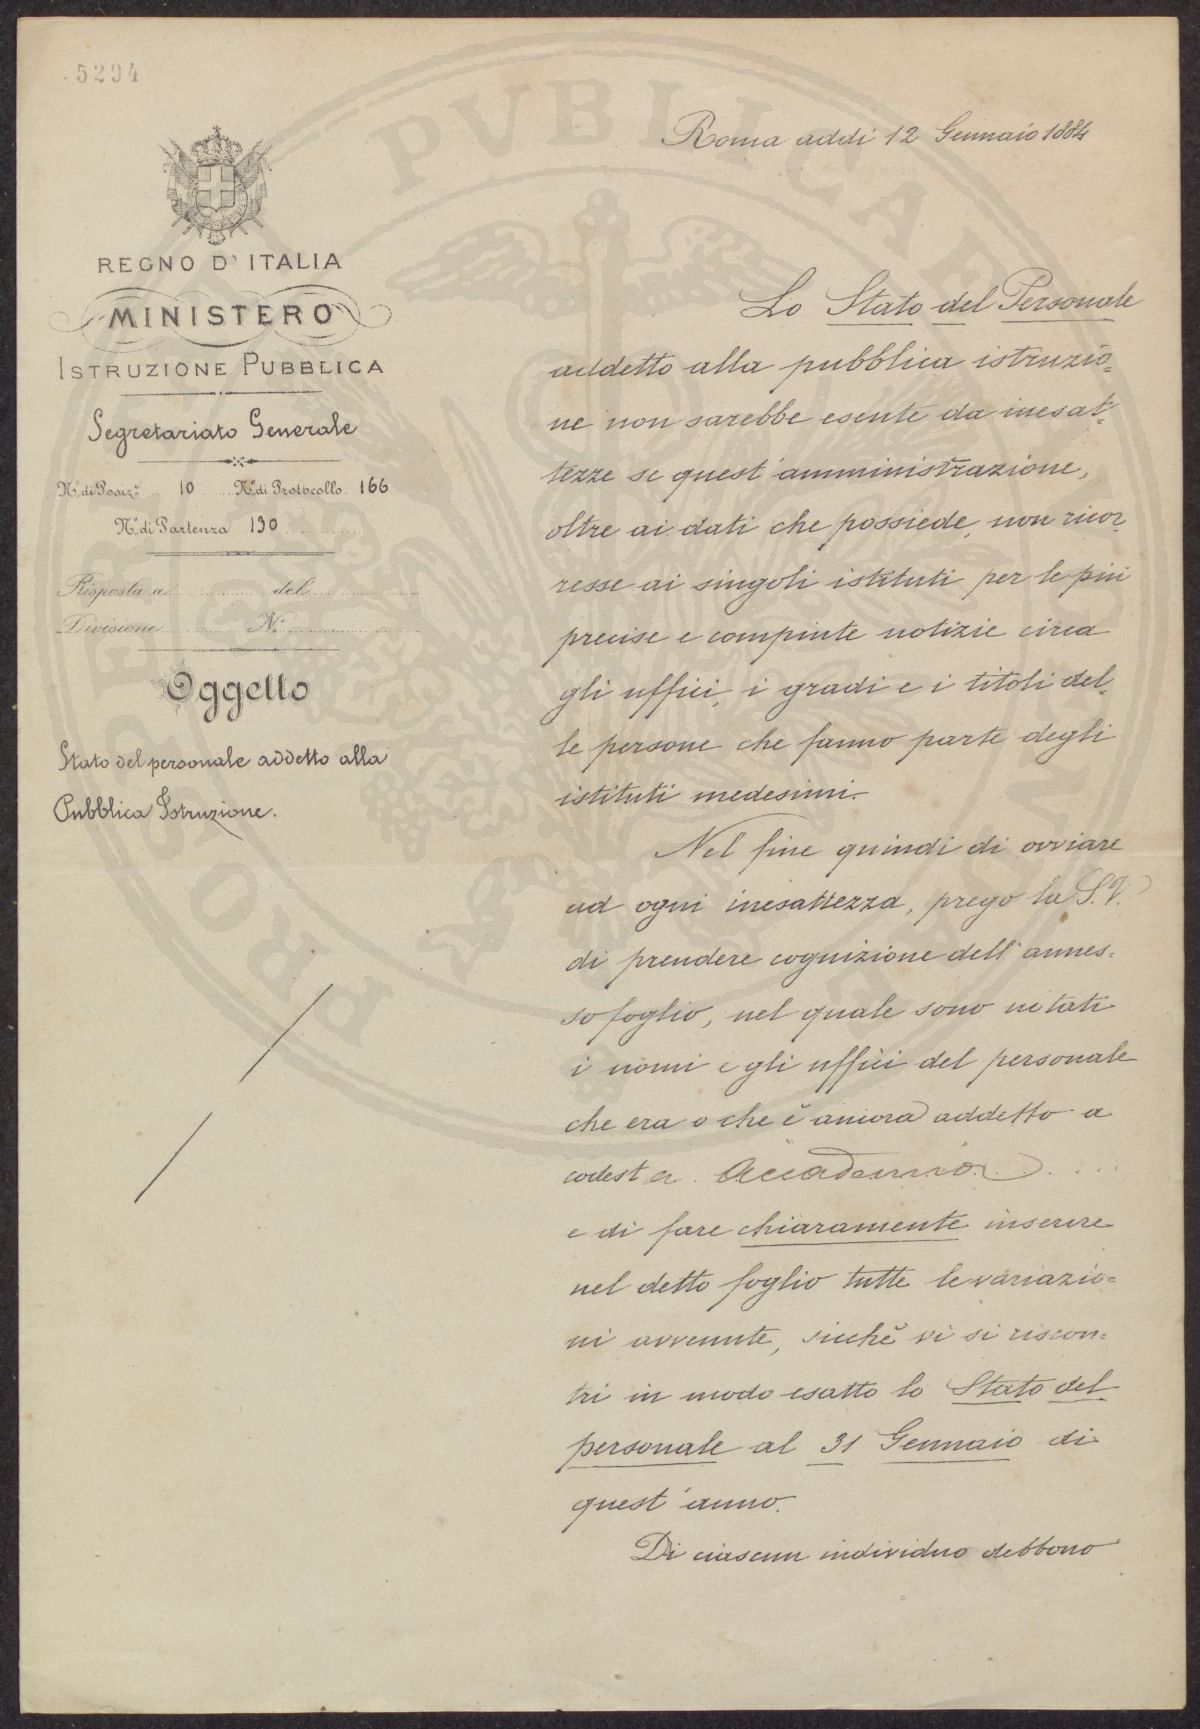 5294
Roma addi 12 Gennaio 1884
REGNO D'ITALIA
MINISTERO
ISTRUZIONE PUBBLICA
Segretariato Generale
N.o di Posiz.e 10 N.o di Protocollo 166
N.o di Partenza 130
Risposta a del
Divisione N.o
Oggetto
Stato del personale addetto alla
Pubblica Istruzione.
Lo Stato del Personale
addetto alla pubblica istruzio=
ne non sarebbe esente da inesat=
tezze se quest'amministrazione,
oltre ai dati che possiede, non ricor=
resse ai singoli istituti per le più
precise e compiute notizie circa
gli uffici, i gradi e i titoli del=
le persone che fanno parte degli
istituti medesimi.
Nel fine quindi di ovviare
ad ogni inesattezza, prego la S.V.
di prendere cognizione dell'annes=
so foglio, nel quale sono notati
i nomi e gli uffici del personale
che era o che è ancora addetto a
codesta Accademia
e di fare chiaramente inserire
nel detto foglio tutte le variazio=
ni avvenute, sicchè vi si riscon=
tri in modo esatto lo Stato del
personale al 31 Gennaio di
quest'anno.
Di ciascun individuo debbono